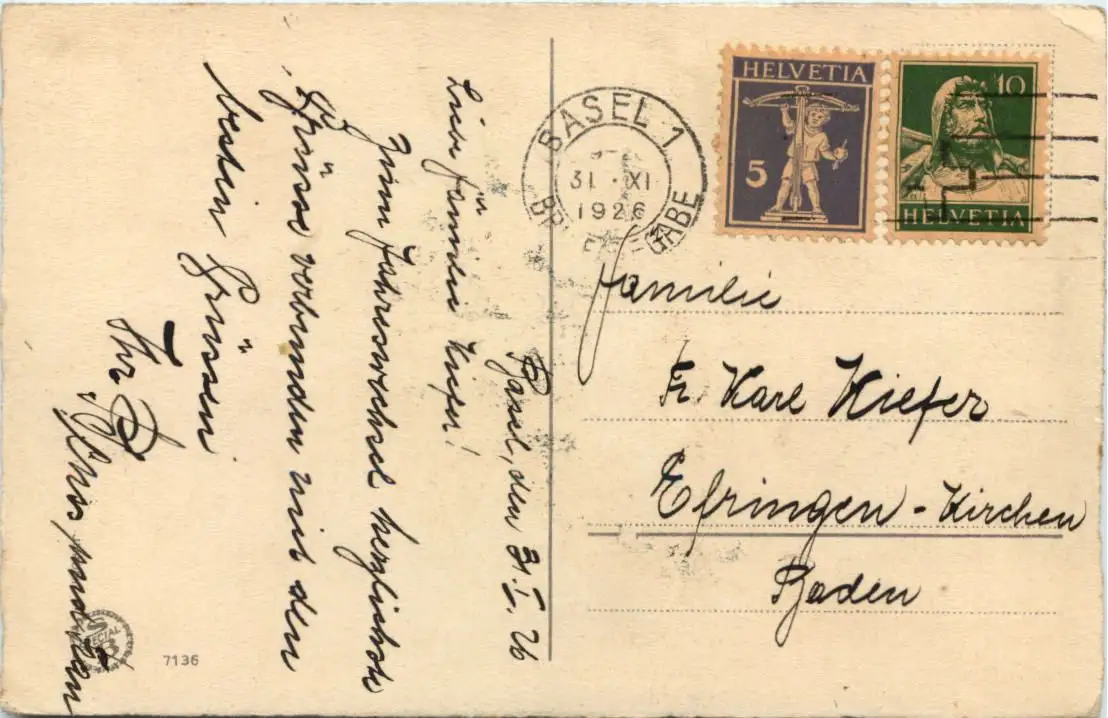 Basel, den 31.I.26
Liebe Familie Kiefer!
Zum Jahreswechsel herzlichste
Grüsse verbunden mit den
besten Grüssen
Ihr
BASEL 1
31. XI
1926
HELVETIA
5
10
HELVETIA
Familie
Fr. Karl Kiefer
Efringen-Kirchen
Baden
7136